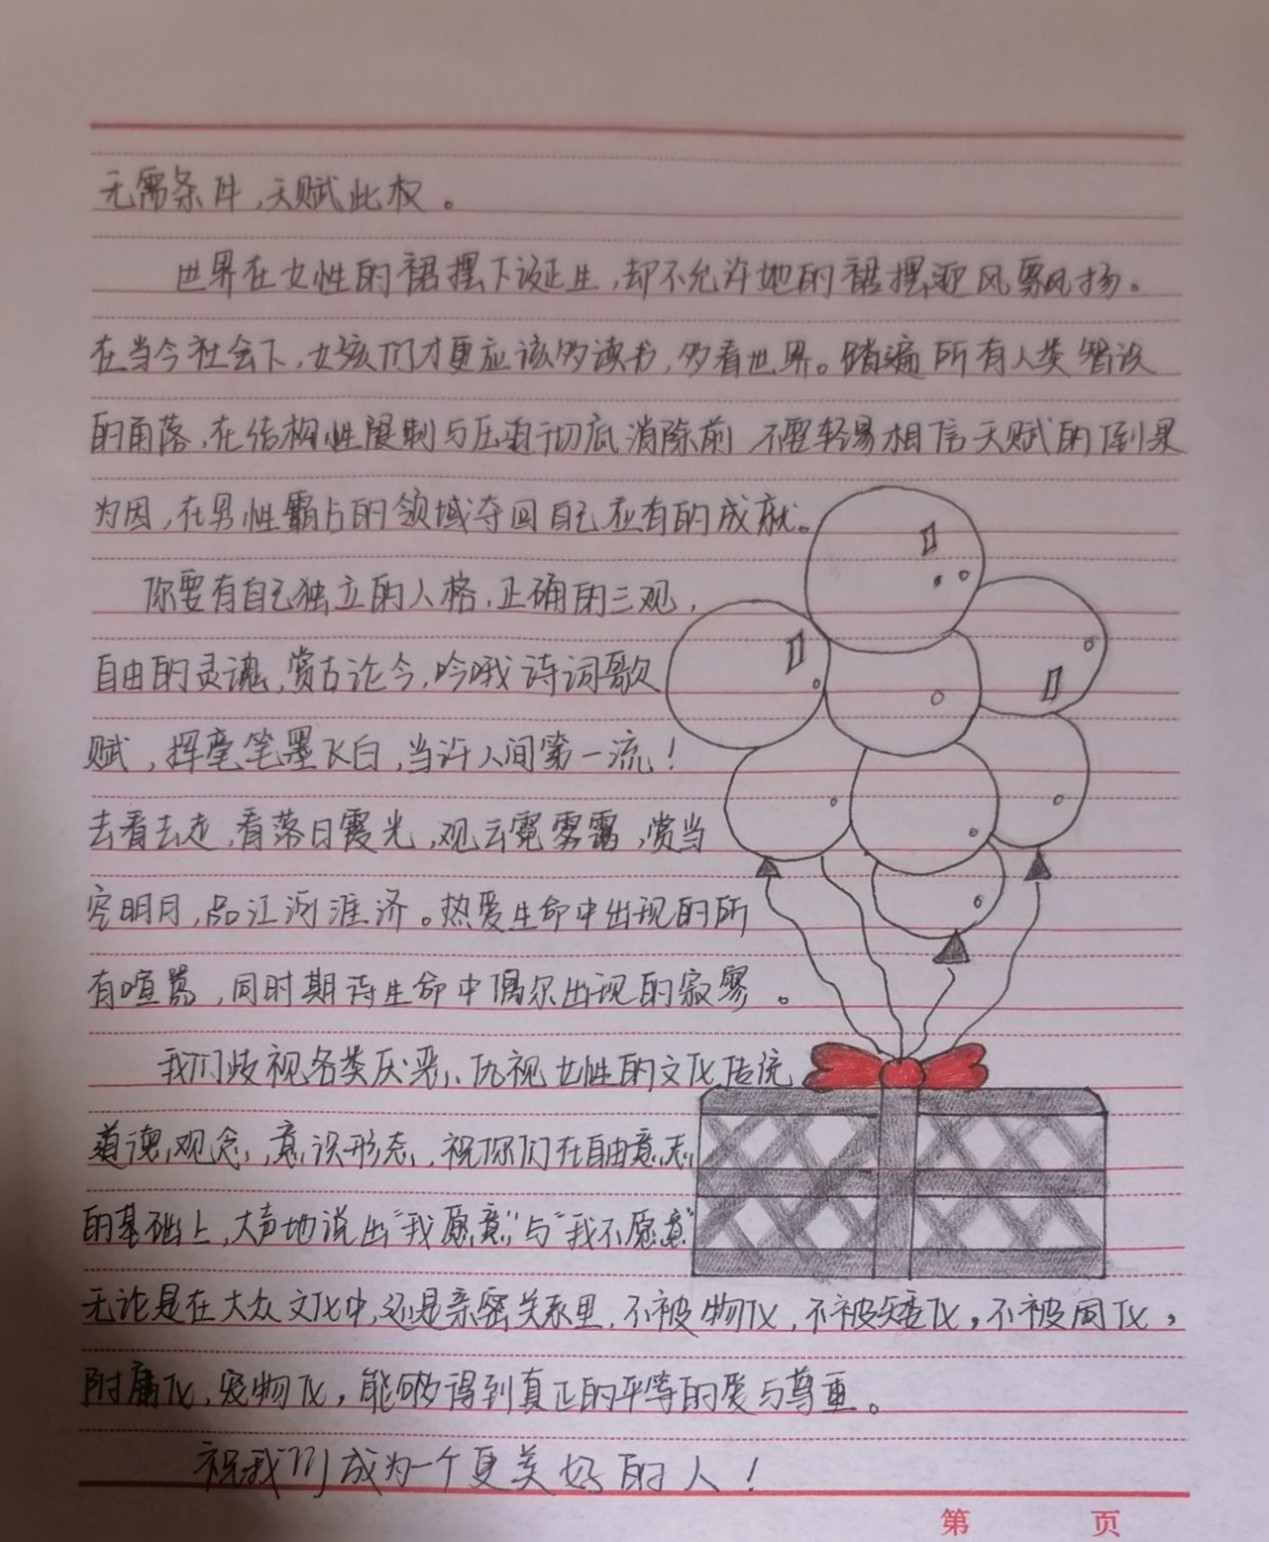 无需条件,天赋此权。
世界在女性的裙摆下诞生,却不允许她的裙摆迎风飘扬。
在当今社会下,女孩们才更应该多读书,多看世界。踏遍所有人类智识
的角落,在结构性限制与压迫彻底消除前,不要轻易相信天赋的倒果
为因,在男性霸占的领域夺回自己应有的成就。
你要有自己独立的人格,正确的三观,
自由的灵魂,赏古论今,吟哦诗词歌
赋,挥毫笔墨飞白,当许人间第一流!
去看去走,看落日霞光,观云霓雾霭,赏当
空明月,品江河淮济。热爱生命中出现的所
有喧嚣,同时期待生命中偶尔出现的寂寥。
我们歧视各类厌恶、仇视女性的文化传统
道德观念,意识形态,祝你们在自由意志
的基础上,大声地说出“我愿意”与“我不愿意”
无论是在大众文化中,还是亲密关系里,不被物化,不被矮化,不被固化,
附庸化,宠物化,能够得到真正的平等的爱与尊重。
祝我们成为一个更美好的人!
第 页